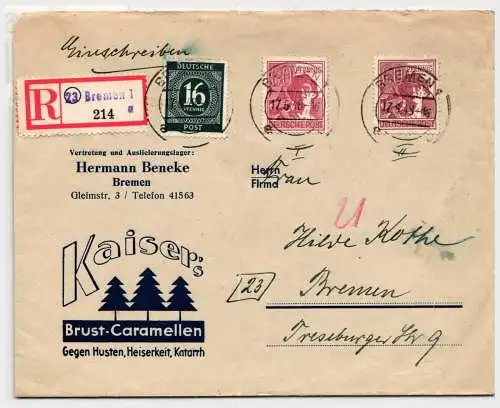 Einschreiben
R
(23) Bremen 1
a
214
DEUTSCHE
16
PFENNIG
POST
DEUTSCHE POST
BREMEN
Vertretung und Auslieferungslager:
Hermann Beneke
Bremen
Gleimstr. 3 / Telefon 41563
Herrn
Firma
Frau
I
II
Hilde Kothe
(23)
Bremen
Treseburger Str 9
Kaiser's
Brust-Caramellen
Gegen Husten, Heiserkeit, Katarrh